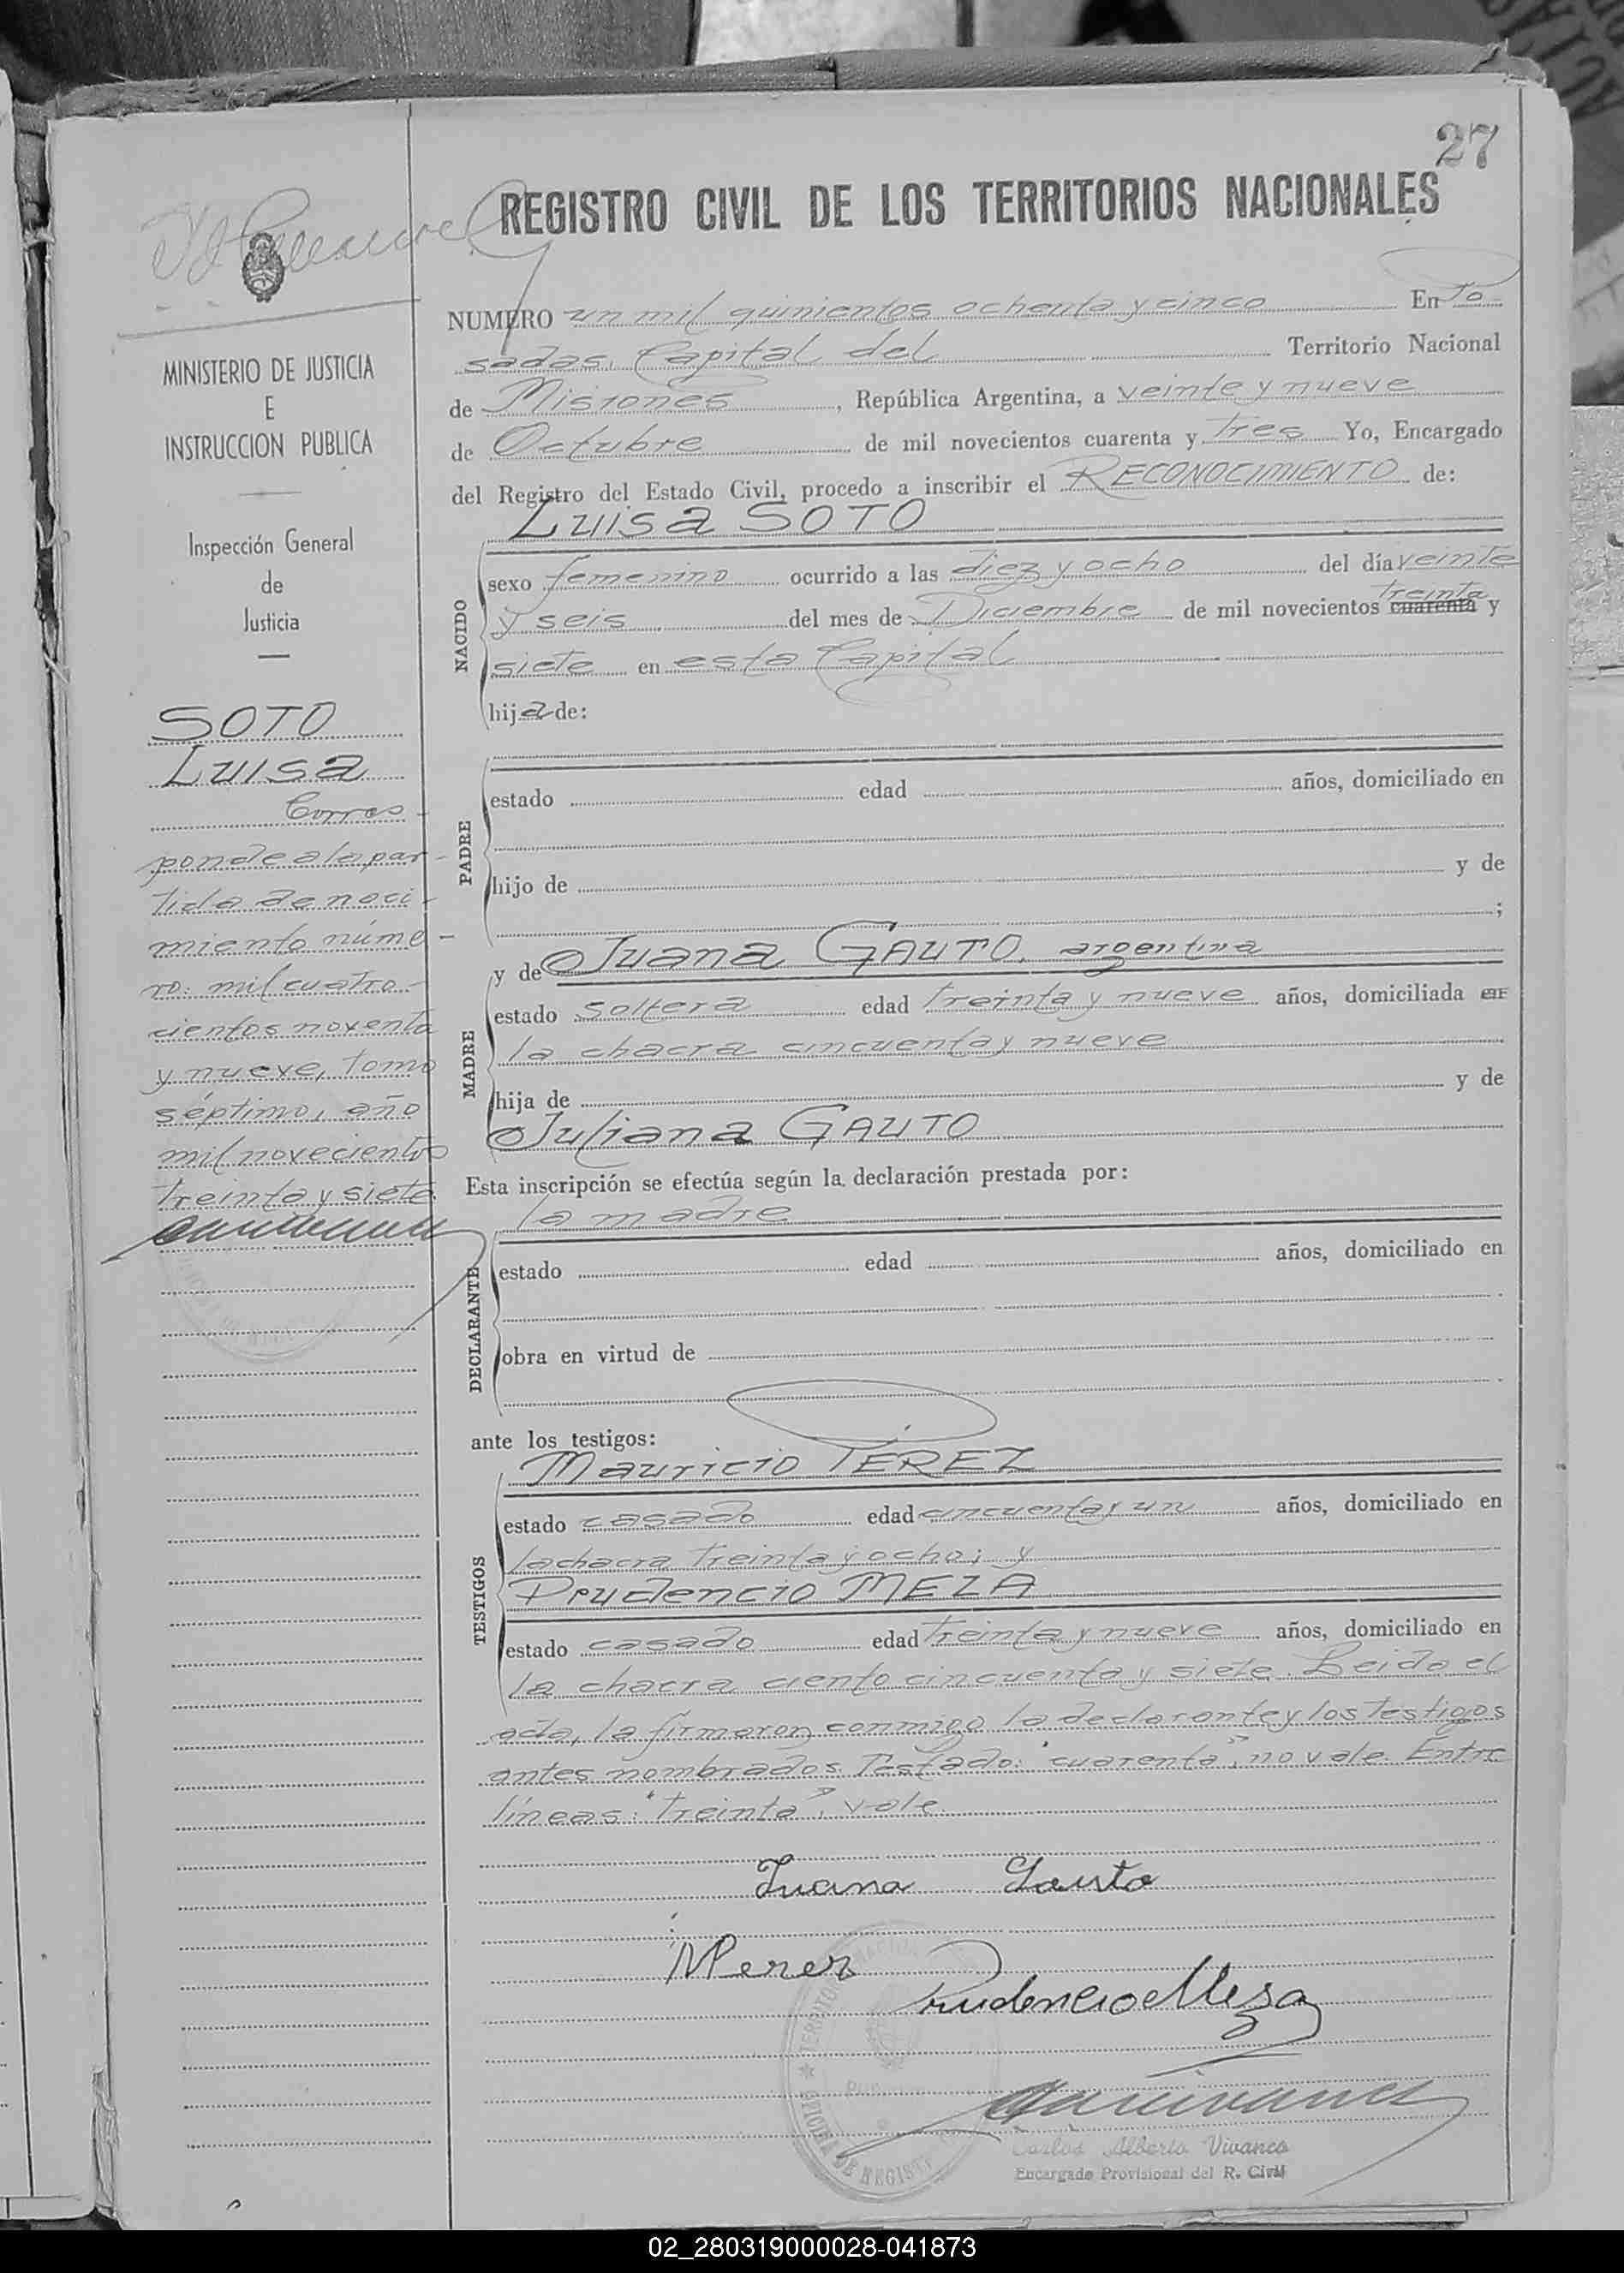 27
REGISTRO CIVIL DE LOS TERRITORIOS NACIONALES
NUMERO un mil quinientos ochenta y cinco En Po
sadas, Capital del Territorio Nacional
de Misiones, República Argentina, a veinte y nueve
de Octubre de mil novecientos cuarenta y tres Yo, Encargado
del Registro del Estado Civil, procedo a inscribir el RECONOCIMIENTO de:
Luisa SOTO
NACIDO
sexo femenino ocurrido a las diez y ocho del día veinte
treinta
y seis del mes de Diciembre de mil novecientos cuarenta y
siete en esta Capital
hija de:
PADRE
estado edad años, domiciliado en
hijo de y de
;
MADRE
y de Juana GAUTO, argentina
estado soltera edad treinta y nueve años, domiciliada en
la chacra cincuenta y nueve
hija de y de
Juliana GAUTO
Esta inscripción se efectúa según la declaración prestada por:
la madre
DECLARANTE
estado edad años, domiciliado en
obra en virtud de
ante los testigos:
TESTIGOS
Mauricio PÉREZ
estado casado edad cincuenta y un años, domiciliado en
la chacra treinta y ocho; y
Prudencio MEZA
estado casado edad treinta y nueve años, domiciliado en
la chacra ciento cincuenta y siete. Leido el
acta, la firmaron conmigo la declarante y los testigos
antes nombrados. Testado: "cuarenta", no vale. Entre
líneas: "treinta", vale.
Juana Gauto
MPerez
Prudencio Meza
Carlos Alberto Vivanco
Encargado Provisional del R. Civil
MINISTERIO DE JUSTICIA
E
INSTRUCCION PUBLICA
Inspección General
de
Justicia
SOTO
Luisa
Corres-
ponde a la par-
tida de naci-
miento núme-
ro: mil cuatro-
cientos noventa
y nueve, tomo
séptimo, año
mil novecientos
treinta y siete.
02_280319000028-041873